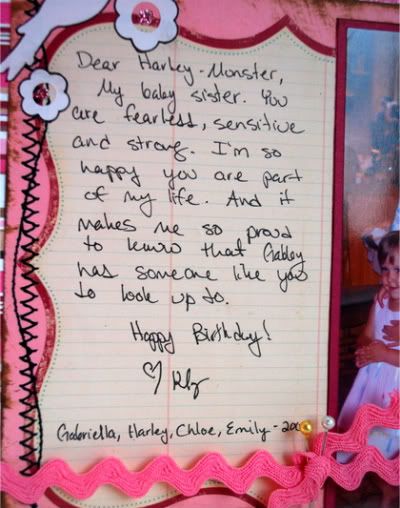 Dear Harley-Monster,
My baby sister. You
are fearless, sensitive
and strong. I'm so
happy you are part
of my life. And it
makes me so proud
to know that Gabley
has someone like you
to look up to.
Happy Birthday!
Gabriella, Harley, Chloe, Emily - 200